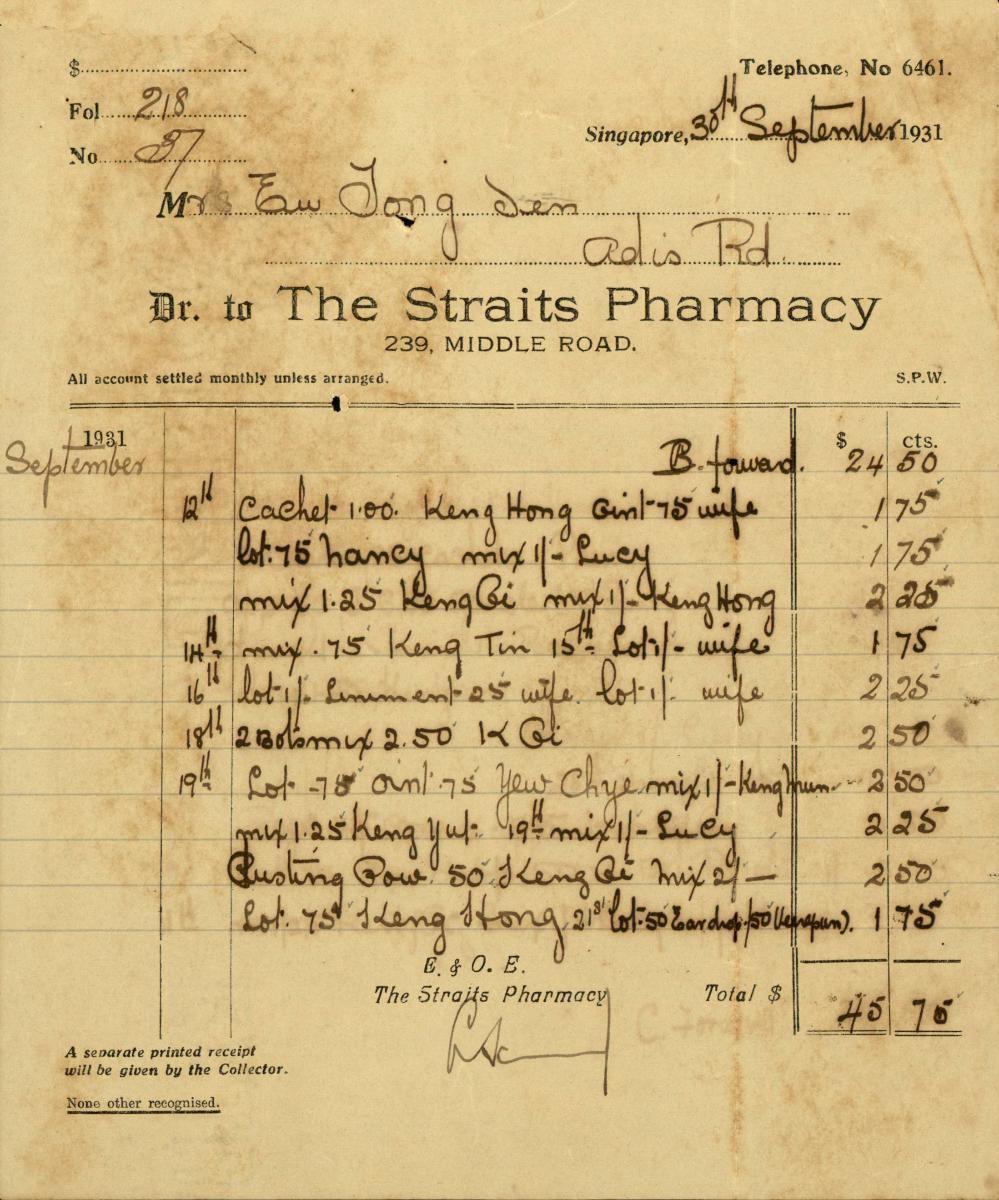 $
Telephone, No 6461.
Fol 218
Singapore, 30th September 1931
No 37
Mrs Eu Tong Sen
Adis Rd.
Dr. to The Straits Pharmacy
239, MIDDLE ROAD.
All account settled monthly unless arranged. S.P.W.
1931 $ cts.
September B. forward. 24 50
12th Cachet 1.00. Keng Hong Oint 75 wife 1 75
lot. 75 Nancy mix 1/- Lucy 1 75
mix 1.25 Keng Qi mix 1/- Keng Hong 2 25
14th mix .75 Keng Tin 15th Lot 1/- wife 1 75
16th lot 1/- Liniment 25 wife. lot 1/- wife 2 25
18th 2 Bots mix 2.50 K Qi 2 50
19th Lot -75 Oint .75 Yew Chye mix 1/- Keng 2 50
mix 1.25 Keng Yut 19th mix 1/- Lucy 2 25
Dusting Pow. 50 Keng Qi Mix 2/- 2 50
Lot. 75 Keng Hong 21st lot .50 Ear drop /50 1 75
E. & O. E.
The Straits Pharmacy Total $ 45 75
A separate printed receipt
will be given by the Collector.
None other recognised.